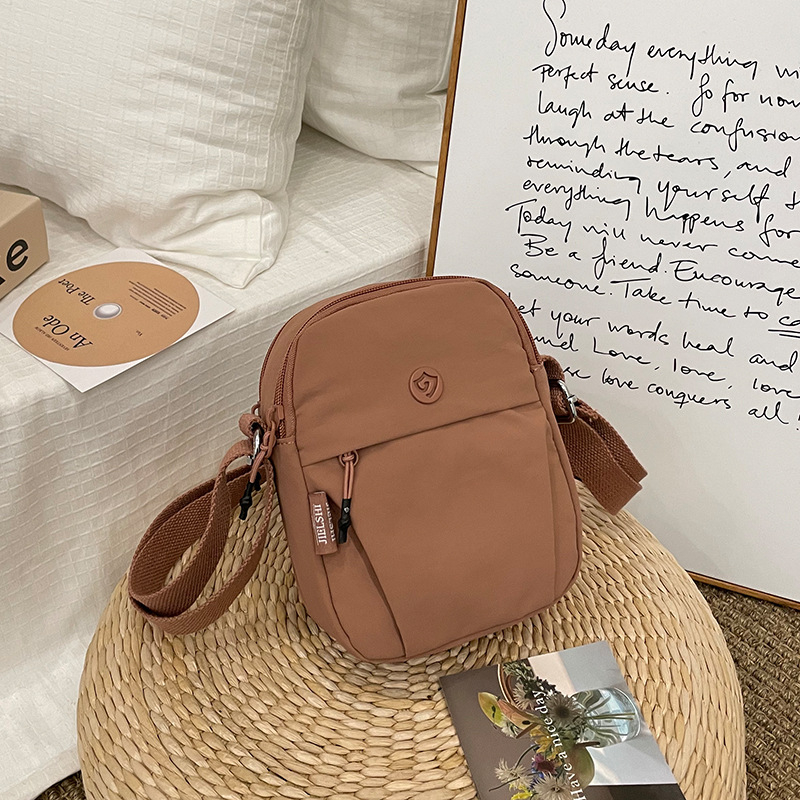 Someday everything wi
perfect sense. So for now
laugh at the confusion
through the tears, and
reminding yourself th
everything happens for
Today will never come
Be a friend. Encourage
someone. Take time to ca
let your words heal and
and Love, love, love
love conquers all!
The Poet
An Ode
JIELSHI
Have a nice day